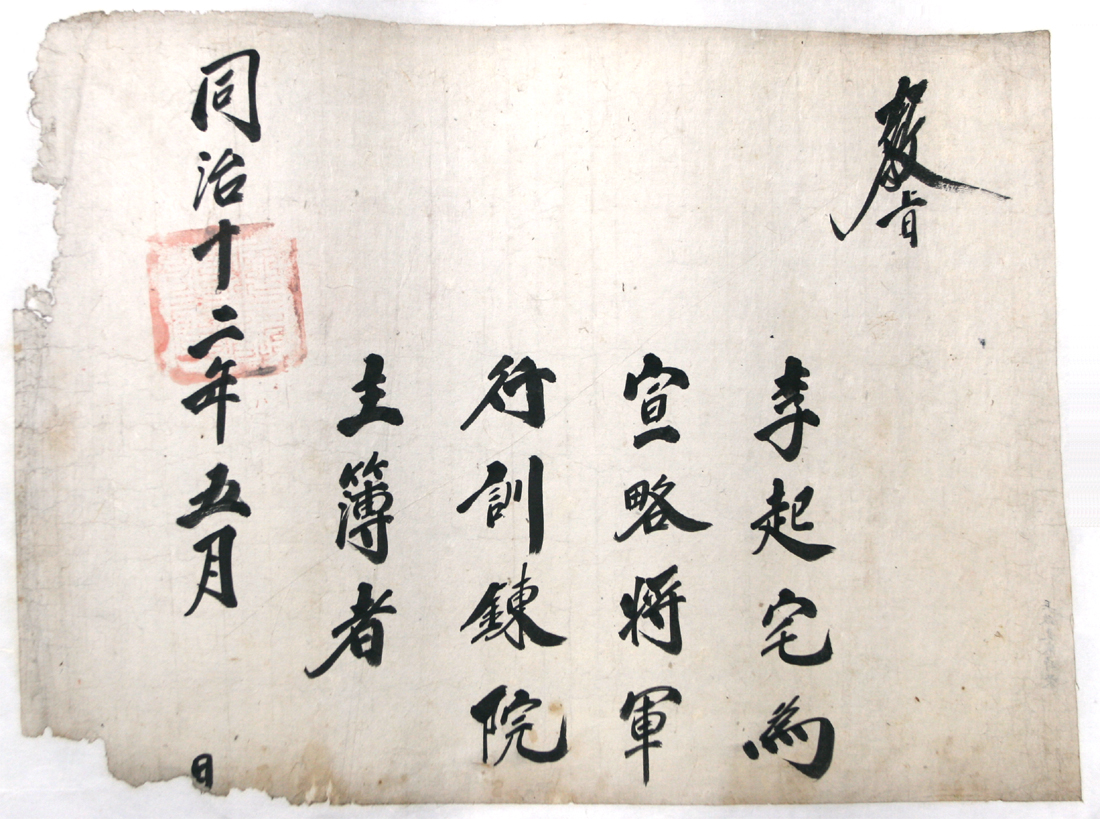 敎旨
李起宅爲
宣略將軍
行訓鍊院
主簿者
同治十二年五月 日